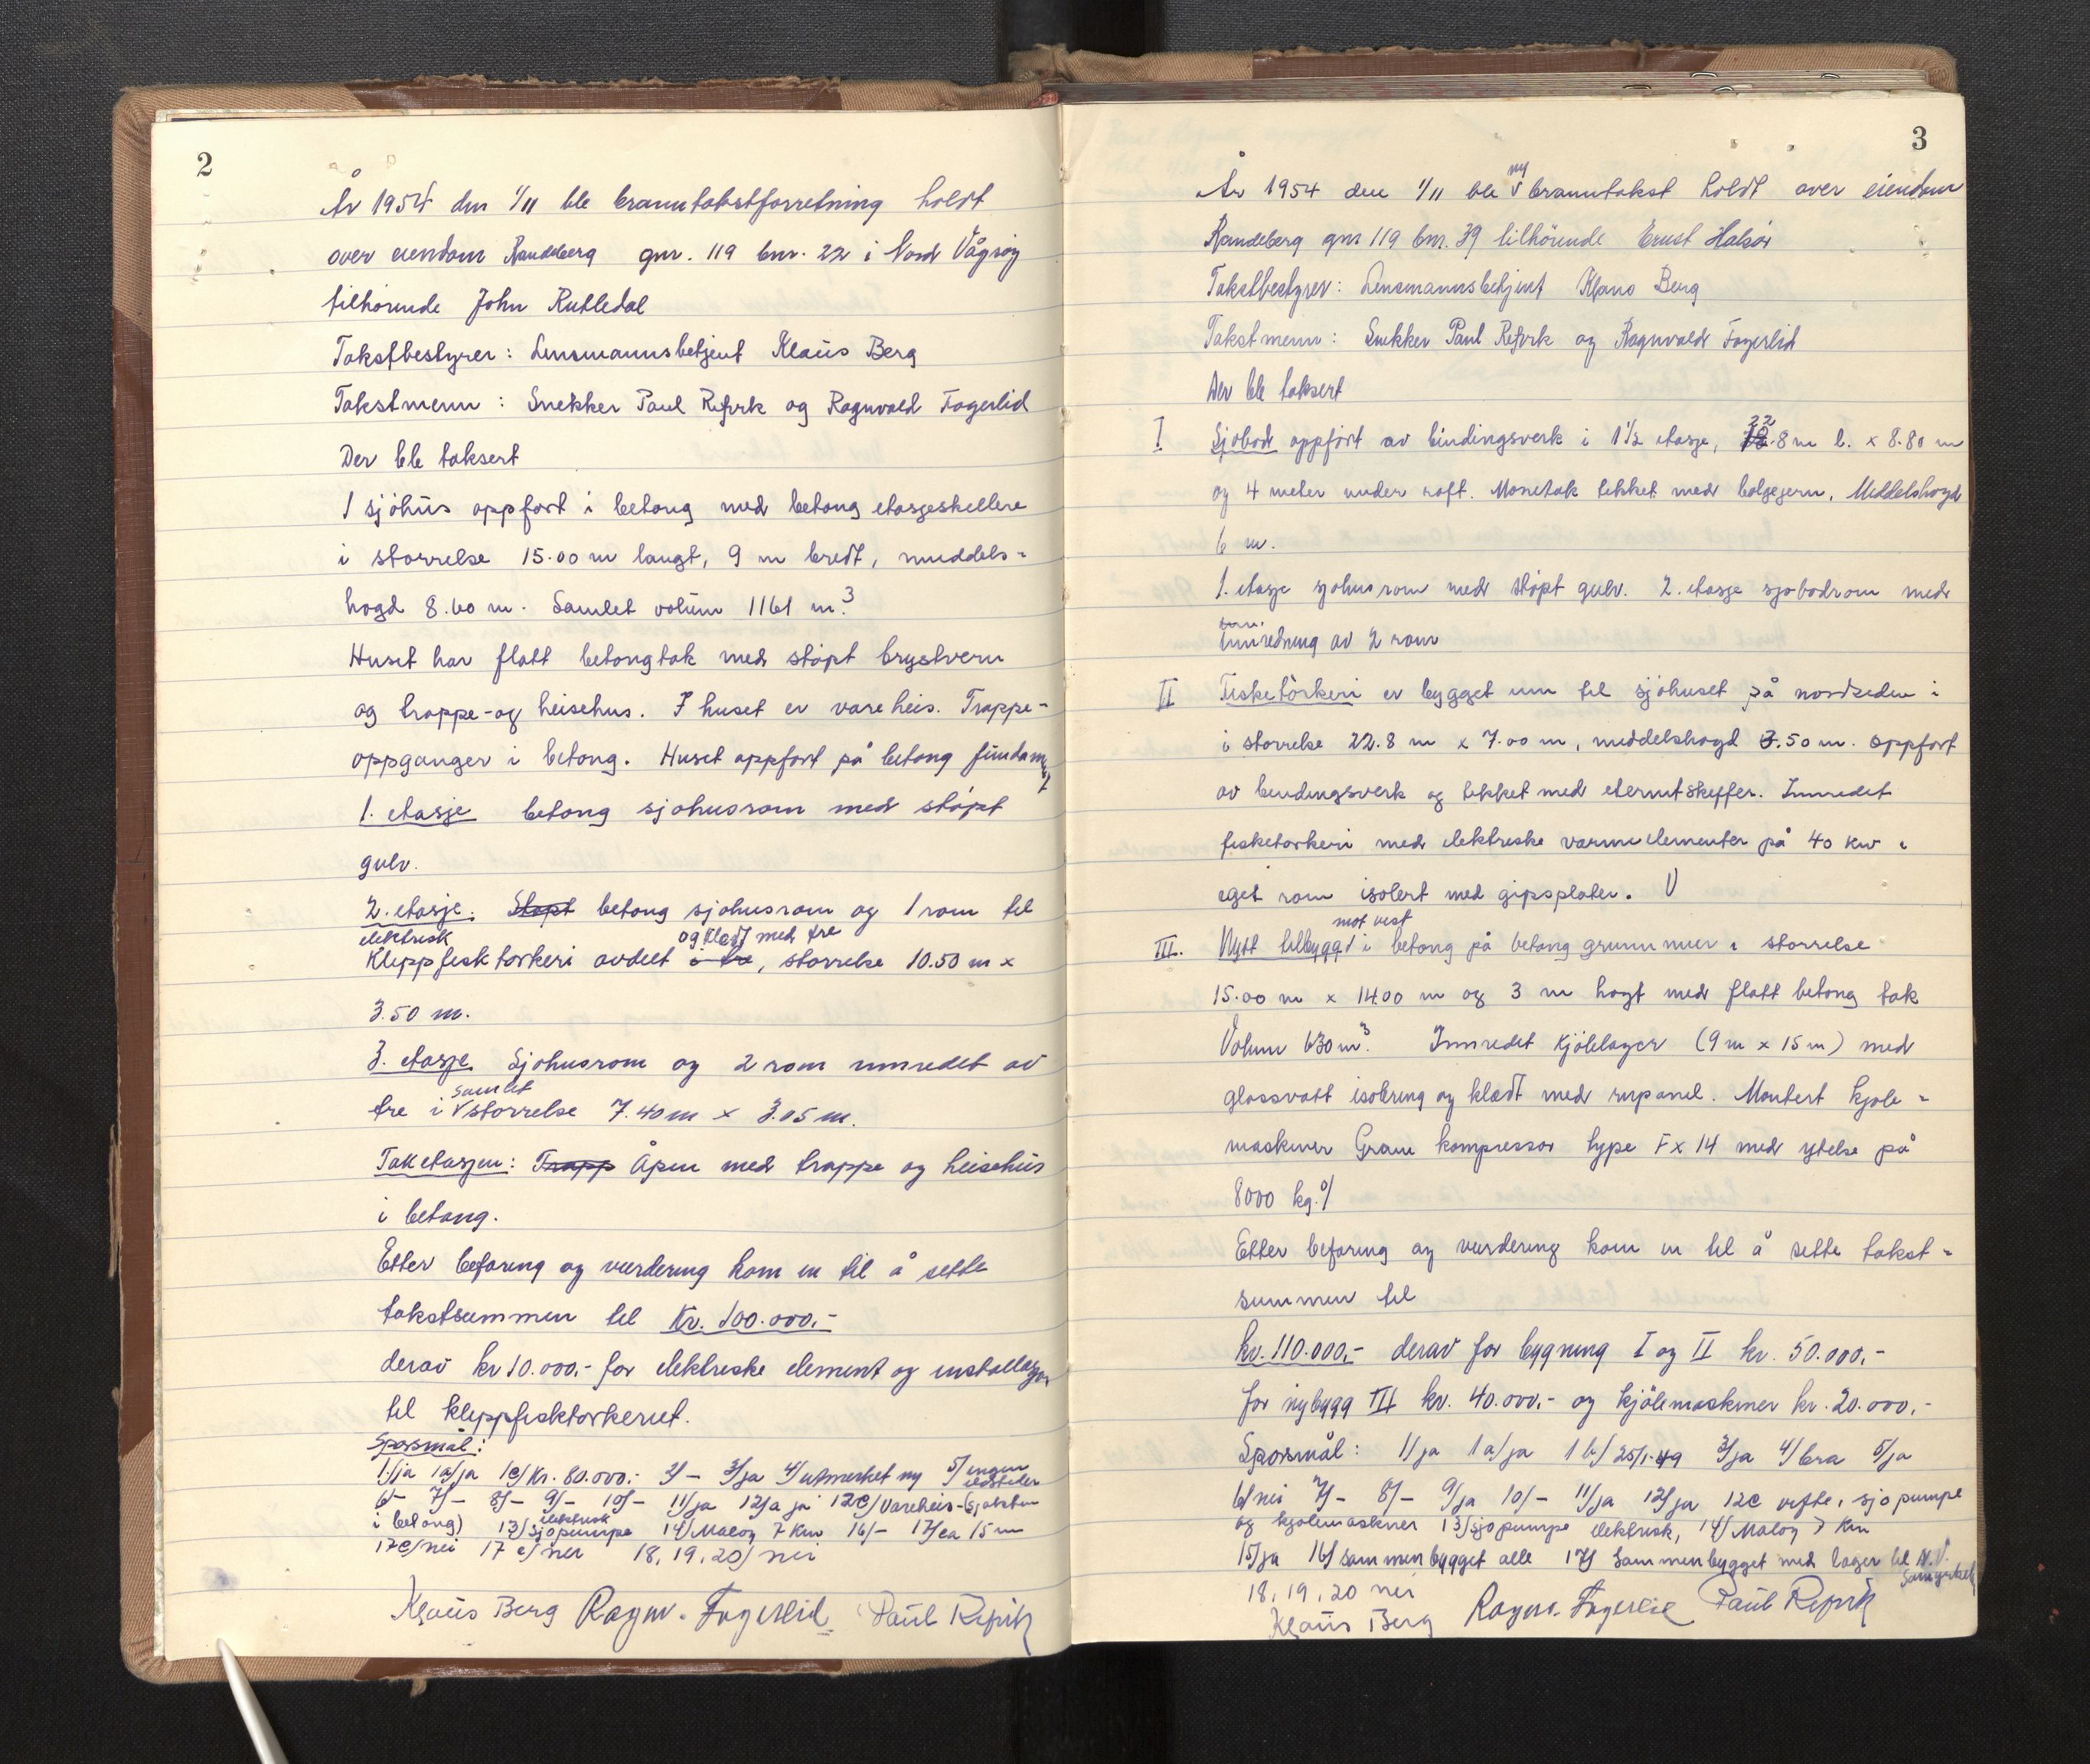 2
År 1954 den 1/11 ble branntakstforretning holdt
over eiendom Randeberg gnr. 119 bnr. 22 i Nord Vågsøy
tilhørende John Rutledal
Takstbestyrer: Lensmannsbetjent Klaus Berg
Takstmenn: Snekker Paul Refvik og Ragnvald Fagerlid
Der ble taksert
1 sjøhus oppført i betong med betong etasjeskillere
i størrelse 15.00 m langt, 9 m bredt, middels-
høgd 8.60 m. Samlet volum 1161 m.3
Huset har flatt betongtak med støpt brystvern
og trappe- og heisehus. I huset er vareheis. Trappe-
oppganger i betong. Huset oppført på betong fundament
1. etasje betong sjøhusrom med støpt
gulv.
2. etasje: Støpt betong sjøhusrom og 1 rom til
elektrisk og kledt med tre
Klippfisktørkeri avdelt i tre, størrelse 10.50 m x
3.50 m.
3. etasje. Sjøhusrom og 2 rom innredet av
samlet
tre i størrelse 7.40 m x 3.05 m.
Taketasjen: Trapp Åpen med trappe og heisehus
i betong.
Etter befaring og vurdering kom en til å sette
takstsummen til Kr. 100.000.-
derav kr 10.000.- for elektriske element og installasjon
til klippfisktørkeriet.
Spørsmål:
1/ja 1a/ja 1c/Kr. 80.000.- 2/- 3/ja 4/utmerket ny 5/ingen ildsteder
6/- 7/- 8/- 9/- 10/- 11/ja 12/a ja 12c/Vareheis-(sjakten
elektrisk
i betong) 13/sjøpumpe 14/Måløy 7 km 16/- 17/ca 15 m
17c/nei 17 e/nei 18, 19, 20/nei
Klaus Berg Ragnv. Fagerlid Paul Refvik
3
ny
År 1954 den 1/11 ble branntakst holdt over eiendom
Randeberg gnr 119 bnr. 39 tilhørende Ernst Halsør
Takstbestyrer: Lensmannsbetjent Klaus Berg
Takstmenn: Snekker Paul Refvik og Ragnvald Fagerlid
Der ble taksert
I Sjøbod oppført av bindingsverk i 1½ etasje, 22.8 m l. x 8.80 m
og 4 meter under raft. Mønetak tekket med bølgejern. Middelshøgd
6 m.
1. etasje sjøhusrom med støpt gulv. 2. etasje sjøbodrom med
innredning av 2 rom
II Fisketørkeri er bygget inn til sjøhuset på nordsiden i
i størrelse 22.8 m x 7.00 m, middelshøgd 3.50 m. oppført
av bindingsverk og tekket med eternitskiffer. Innredet
fisketørkeri med elektriske varmeelementer på 40 kw i
eget rom isolert med gipsplater.
mot vest
III. Nytt tilbygg i betong på betong grunnmur i størrelse
15.00 m x 14.00 m og 3 m høgt med flatt betong tak
Volum 630 m3. Innredet kjølelager (9 m x 15 m) med
glassvatt isolering og kledt med rupanel. Montert kjøle-
maskiner Gram kompressor type F x 14 med ytelse på
8000 kg.
Etter befaring og vurdering kom en til å sette takst-
summen til
kr. 110.000.- derav for bygning I og II kr. 50.000.-
for nybygg III kr. 40.000.- og kjølemaskiner kr. 20.000.-
Spørsmål: 1/ja 1a/ja 1b/25/1-49 3/ja 4/bra 5/ja
6/nei 7/- 8/- 9/ja 10/- 11/ja 12/ja 12c vifte, sjøpumpe
og kjølemaskiner 13/sjøpumpe elektrisk, 14/Måløy 7 km
15/ja 16/sammenbygget alle 17/Sammenbygget med lager til N.V.
18, 19, 20 nei
Klaus Berg Ragnv. Fagerlid Paul Refvik